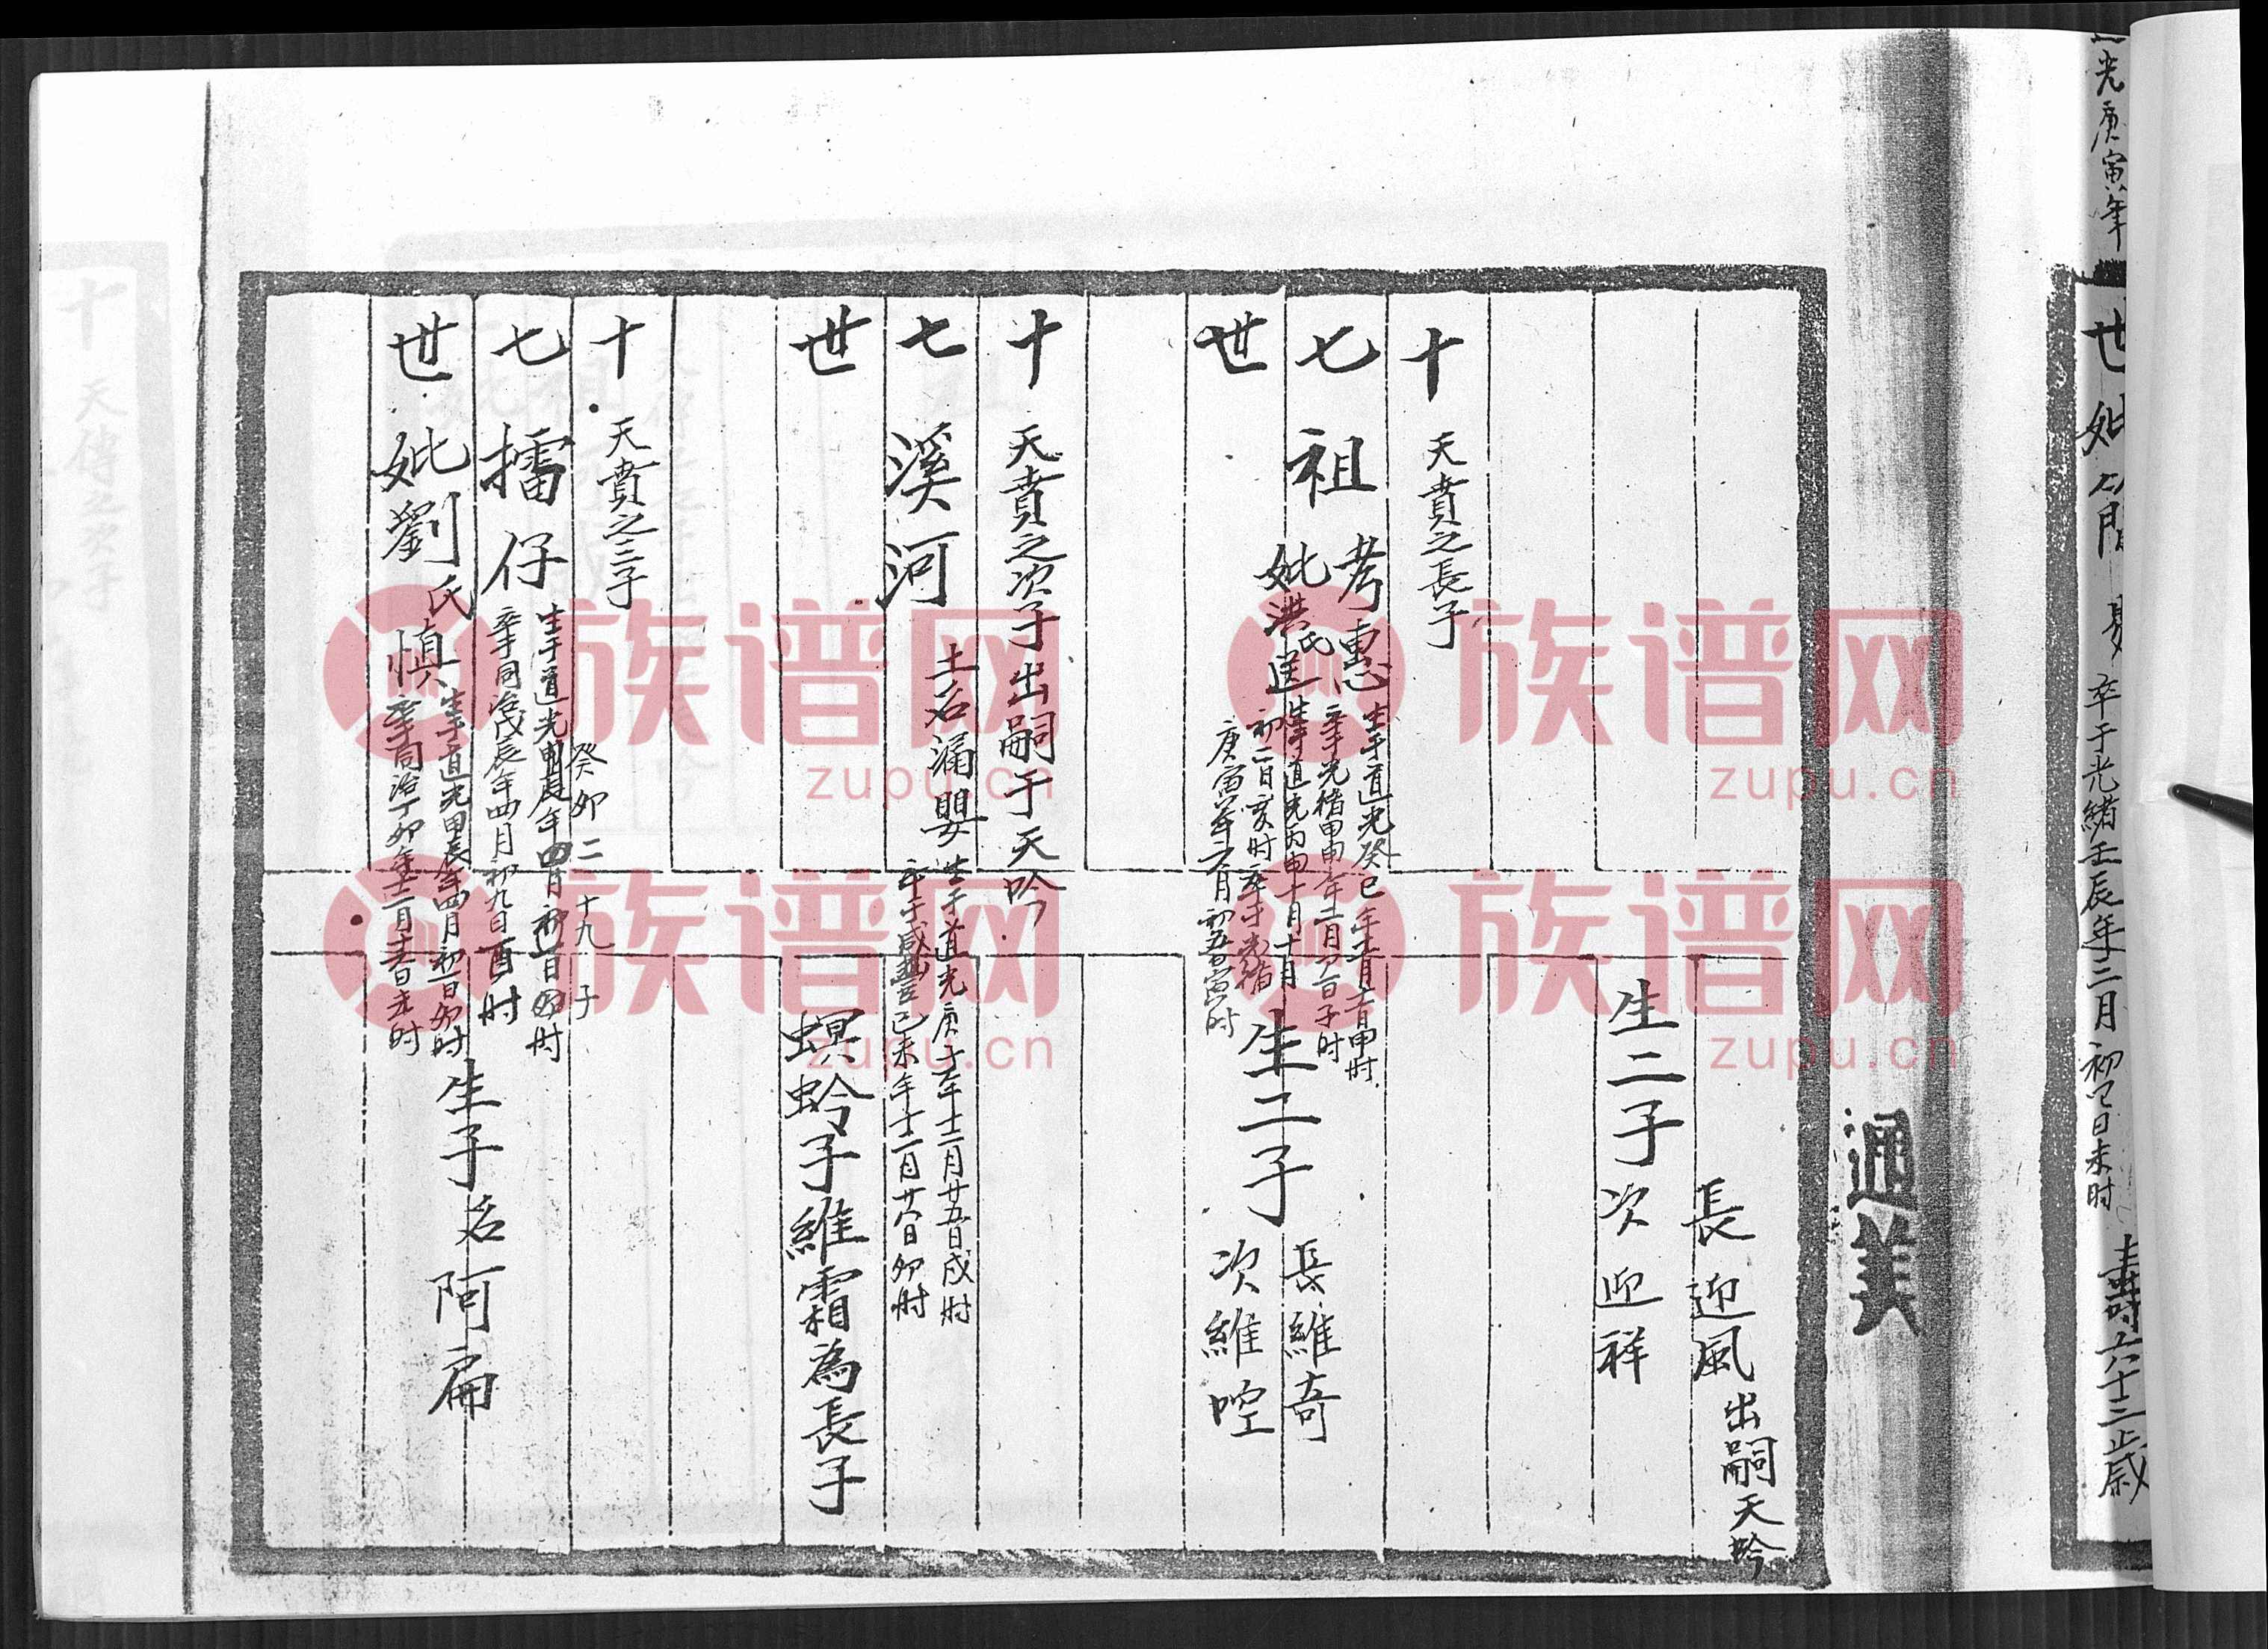 光庚寅年
世妣簡
卒于光緒壬辰年二月初四日未时
壽六十三歲
通美
生二子
長迎風出嗣天
次迎祥
十七世
天賁之長子
祖考惠
生于道光癸巳年
卒于光緒甲申年
子时
妣洪氏送
生于道光丙申十月十
初二日亥时卒于光緒
庚寅年
寅时
生二子
長維奇
次維啌
十七世
天賁之次子出嗣于天吟
溪河
土名漏嬰
生于道光庚子年十二月廿五日戌时
卒于咸豐己未年十二月廿六日卯时
螟蛉子維霜為長子
十七世
天賁之三子
擂仔
癸卯二十九子
生于道光年四月初一日时
卒于同治戊辰年四月初九日酉时
妣劉氏慎
生于道光甲辰年四月初一日卯时
卒于同治丁卯年十二月十六日未时
生子名阿扁
十
天傳之次子
族谱网
zupu.cn
族谱网
zupu.cn
族谱网
zupu.cn
族谱网
zupu.cn